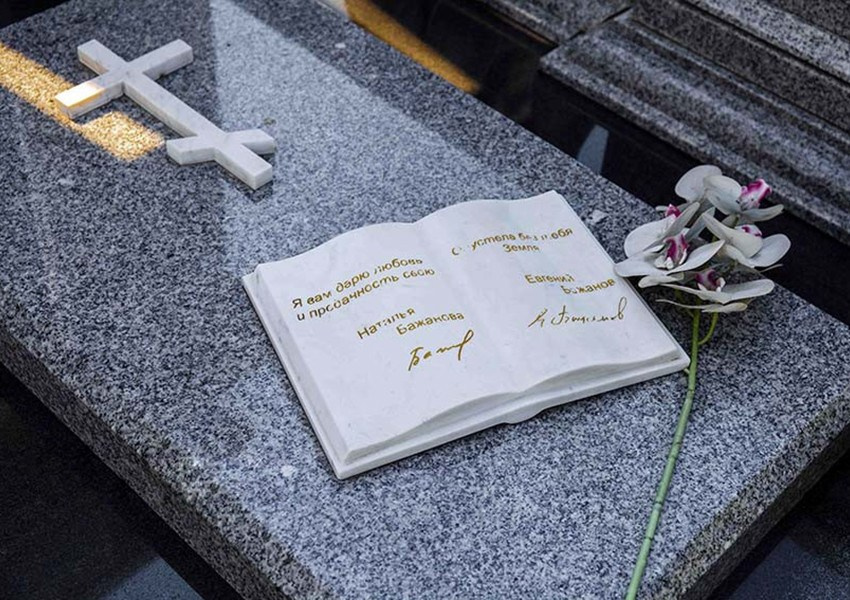 Я вам дарю любовь
и прозрачность свою
Наталья
Бажанова
Опустела без тебя
Земля
Евгений
Бажанов